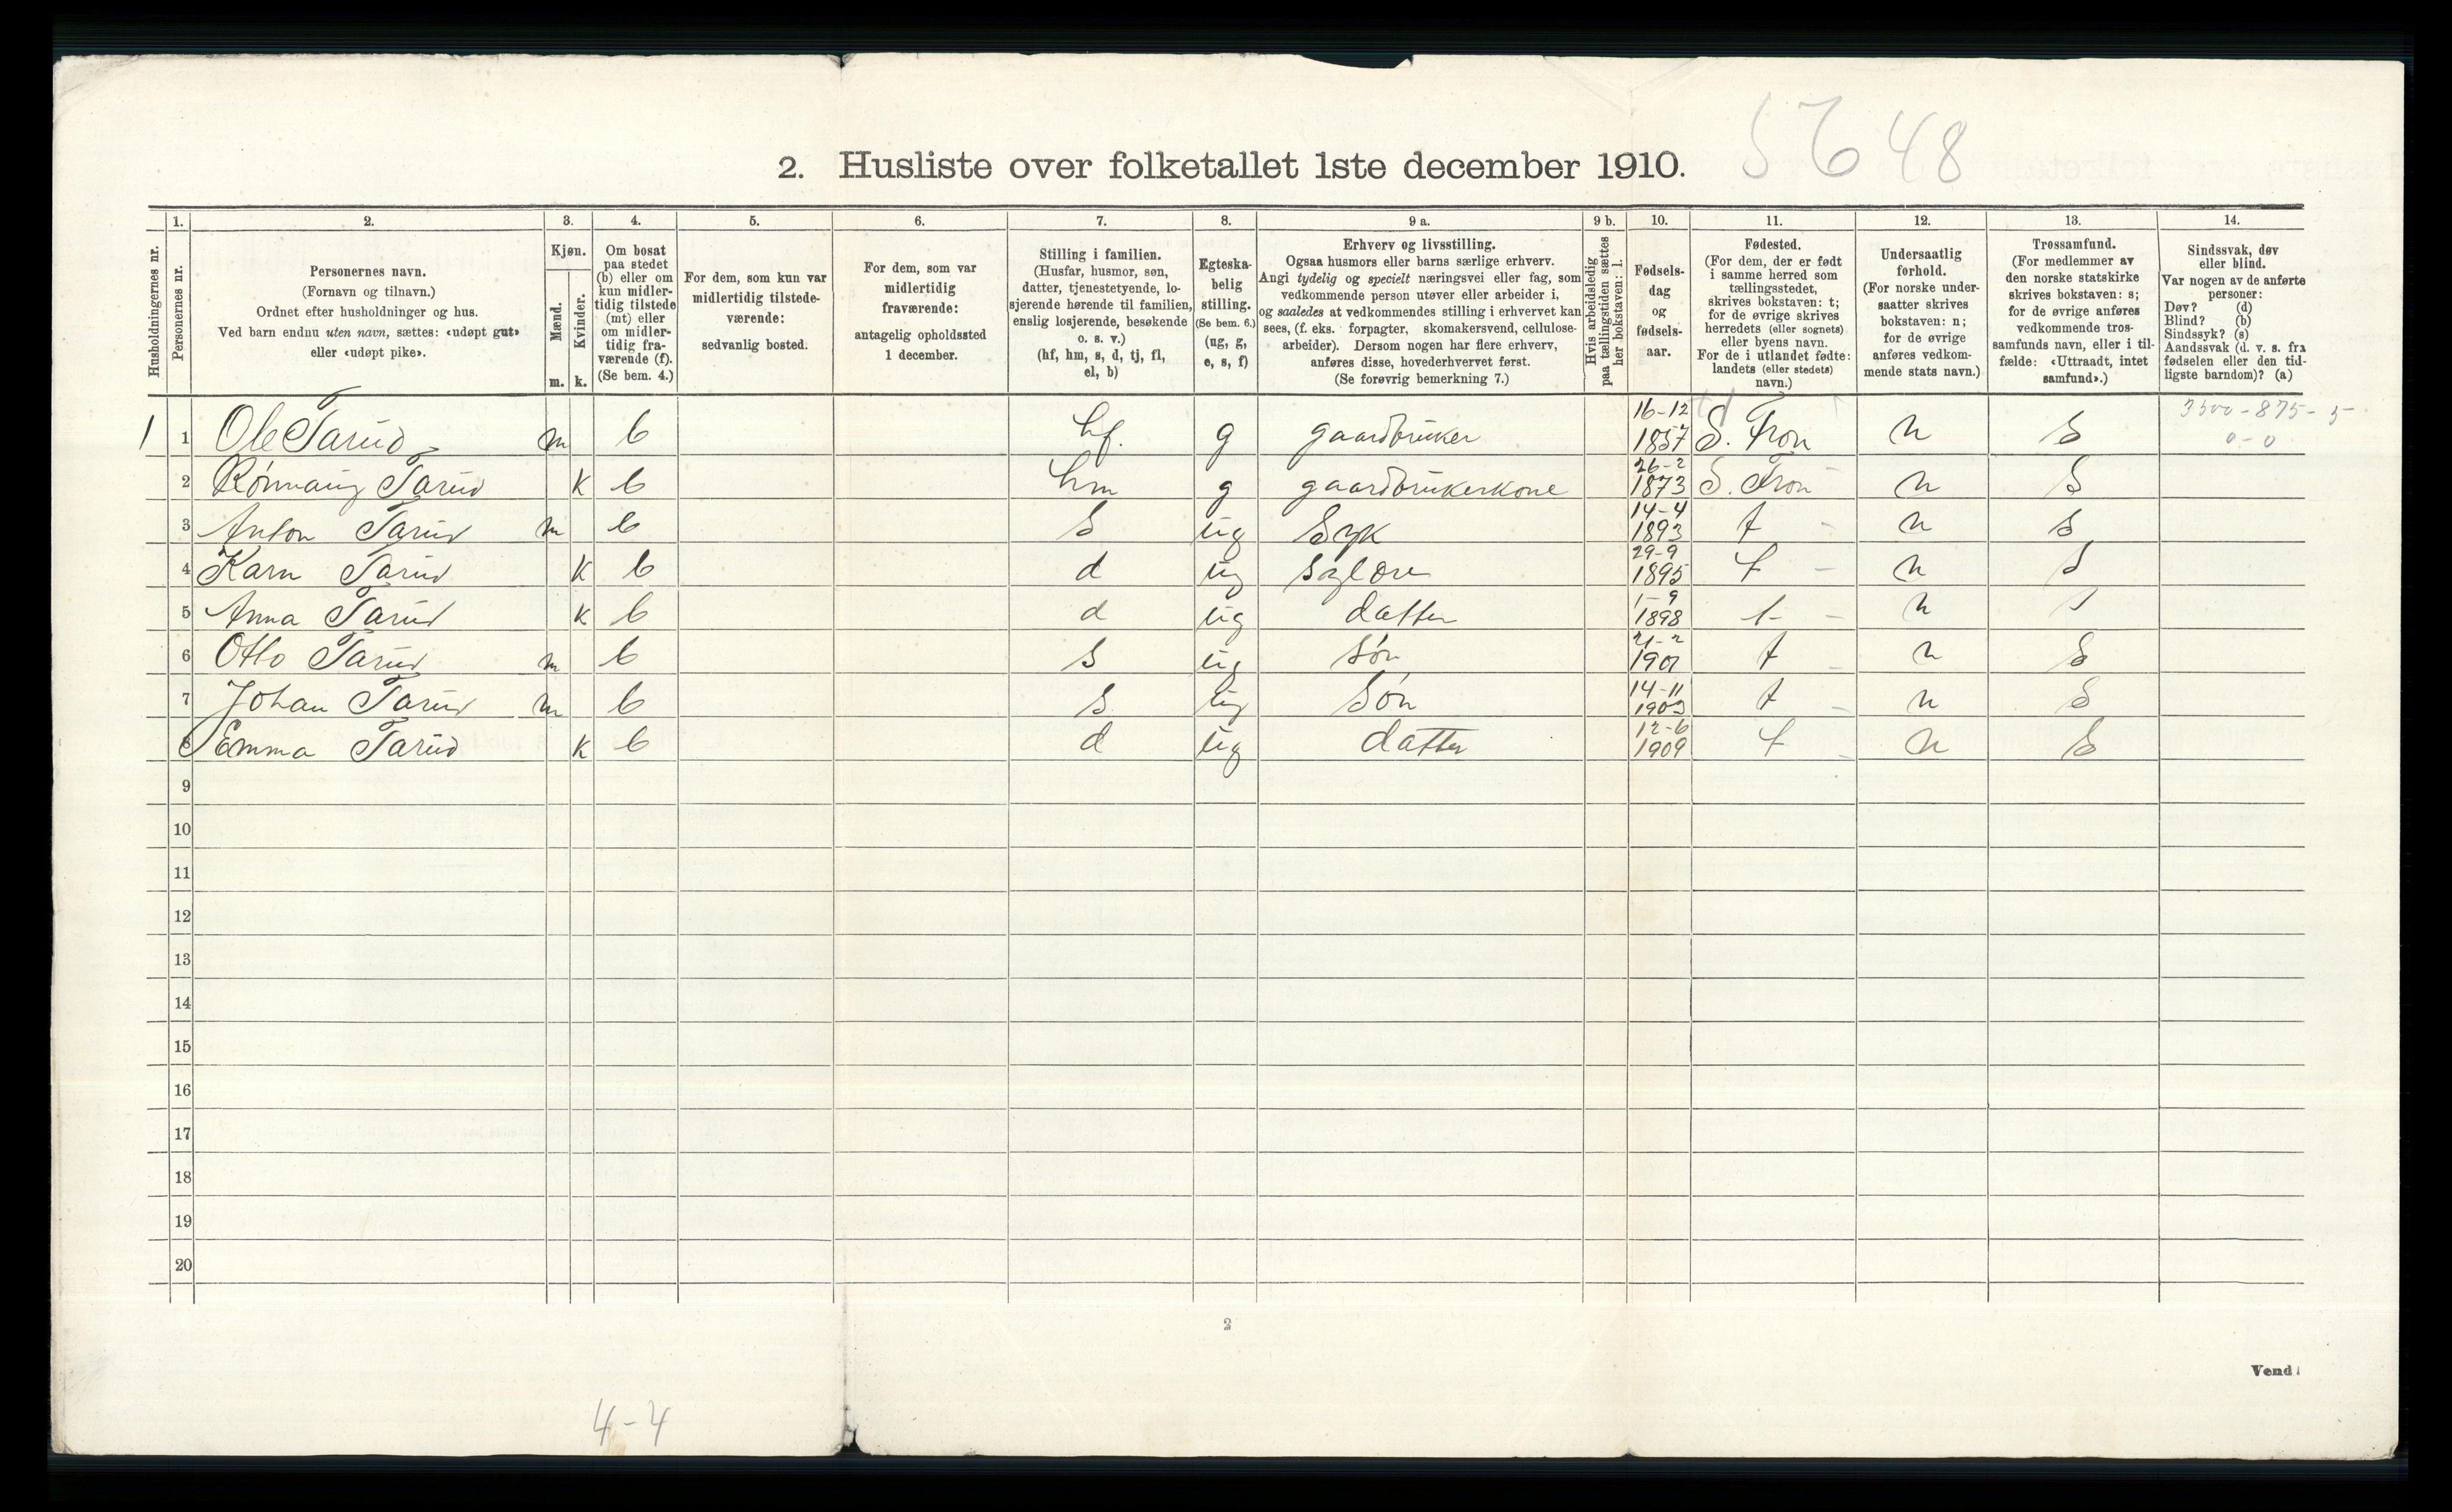 5648
2. Husliste over folketallet 1ste december 1910.
Husholdningernes nr.
1.
Personernes nr.
2.
Personernes navn.
(Fornavn og tilnavn.)
Ordnet efter husholdninger og hus.
Ved barn endnu uten navn, sættes: «udøpt gut»
eller «udøpt pike».
3.
Kjøn.
Mænd.
m.
Kvinder.
k.
4.
Om bosat
paa stedet
(b) eller om
kun midler-
tidig tilstede
(mt) eller
om midler-
tidig fra-
værende (f).
(Se bem. 4.)
5.
For dem, som kun var
midlertidig tilstede-
værende:
sedvanlig bosted.
6.
For dem, som var
midlertidig
fraværende:
antagelig opholdssted
1 december.
7.
Stilling i familien.
(Husfar, husmor, søn,
datter, tjenestetyende, lo-
sjerende hørende til familien,
enslig losjerende, besøkende
o. s. v.)
(hf, hm, s, d, tj, fl,
el, b)
8.
Egteska-
belig
stilling.
(Se bem. 6.)
(ug, g,
e, s, f)
9 a.
Erhverv og livsstilling.
Ogsaa husmors eller barns særlige erhverv.
Angi tydelig og specielt næringsvei eller fag, som
vedkommende person utøver eller arbeider i,
og saaledes at vedkommendes stilling i erhvervet kan
sees, (f. eks. forpagter, skomakersvend, cellulose-
arbeider). Dersom nogen har flere erhverv,
anføres disse, hovederhvervet først.
(Se forøvrig bemerkning 7.)
9 b.
Hvis arbeidsledig
paa tællingstiden sættes
her bokstaven: l.
10.
Fødsels-
dag
og
fødsels-
aar.
11.
Fødested.
(For dem, der er født
i samme herred som
tællingsstedet,
skrives bokstaven: t;
for de øvrige skrives
herredets (eller sognets)
eller byens navn.
For de i utlandet fødte:
landets (eller stedets)
navn.)
12.
Undersaatlig
forhold.
(For norske under-
saatter skrives
bokstaven: n;
for de øvrige
anføres vedkom-
mende stats navn.)
13.
Trossamfund.
(For medlemmer av
den norske statskirke
skrives bokstaven: s;
for de øvrige anføres
vedkommende tros-
samfunds navn, eller i til-
fælde: «Uttraadt, intet
samfund».)
14.
Sindssvak, døv
eller blind.
Var nogen av de anførte
personer:
Døv? (d)
Blind? (b)
Sindssyk? (s)
Aandssvak (d. v. s. fra
fødselen eller den tid-
ligste barndom)? (a)
1 1 Ole Tarud m b hf. g gaardbruker 16-12 1857 S. Fron n S 3500-875-5 0-0
2 Rønnaug Tarud k b hm g gaardbrukerkone 26-2 1873 S. Fron n S
3 Anton Tarud m b S ug Syk 14-4 1893 t n S
4 Karn Tarud k b d ug 29-9 1895 t n S
5 Anna Tarud k b d ug datter 1-9 1898 t n S
6 Otto Tarud m b S ug Søn 21-2 1901 t n S
7 Johan Tarud m b S ug Søn 14-11 1903 t n S
8 Emma Tarud k b d ug datter 12-6 1909 t n S
9
10
11
12
13
14
15
16
17
18
19
20
2
Vend!
4-4